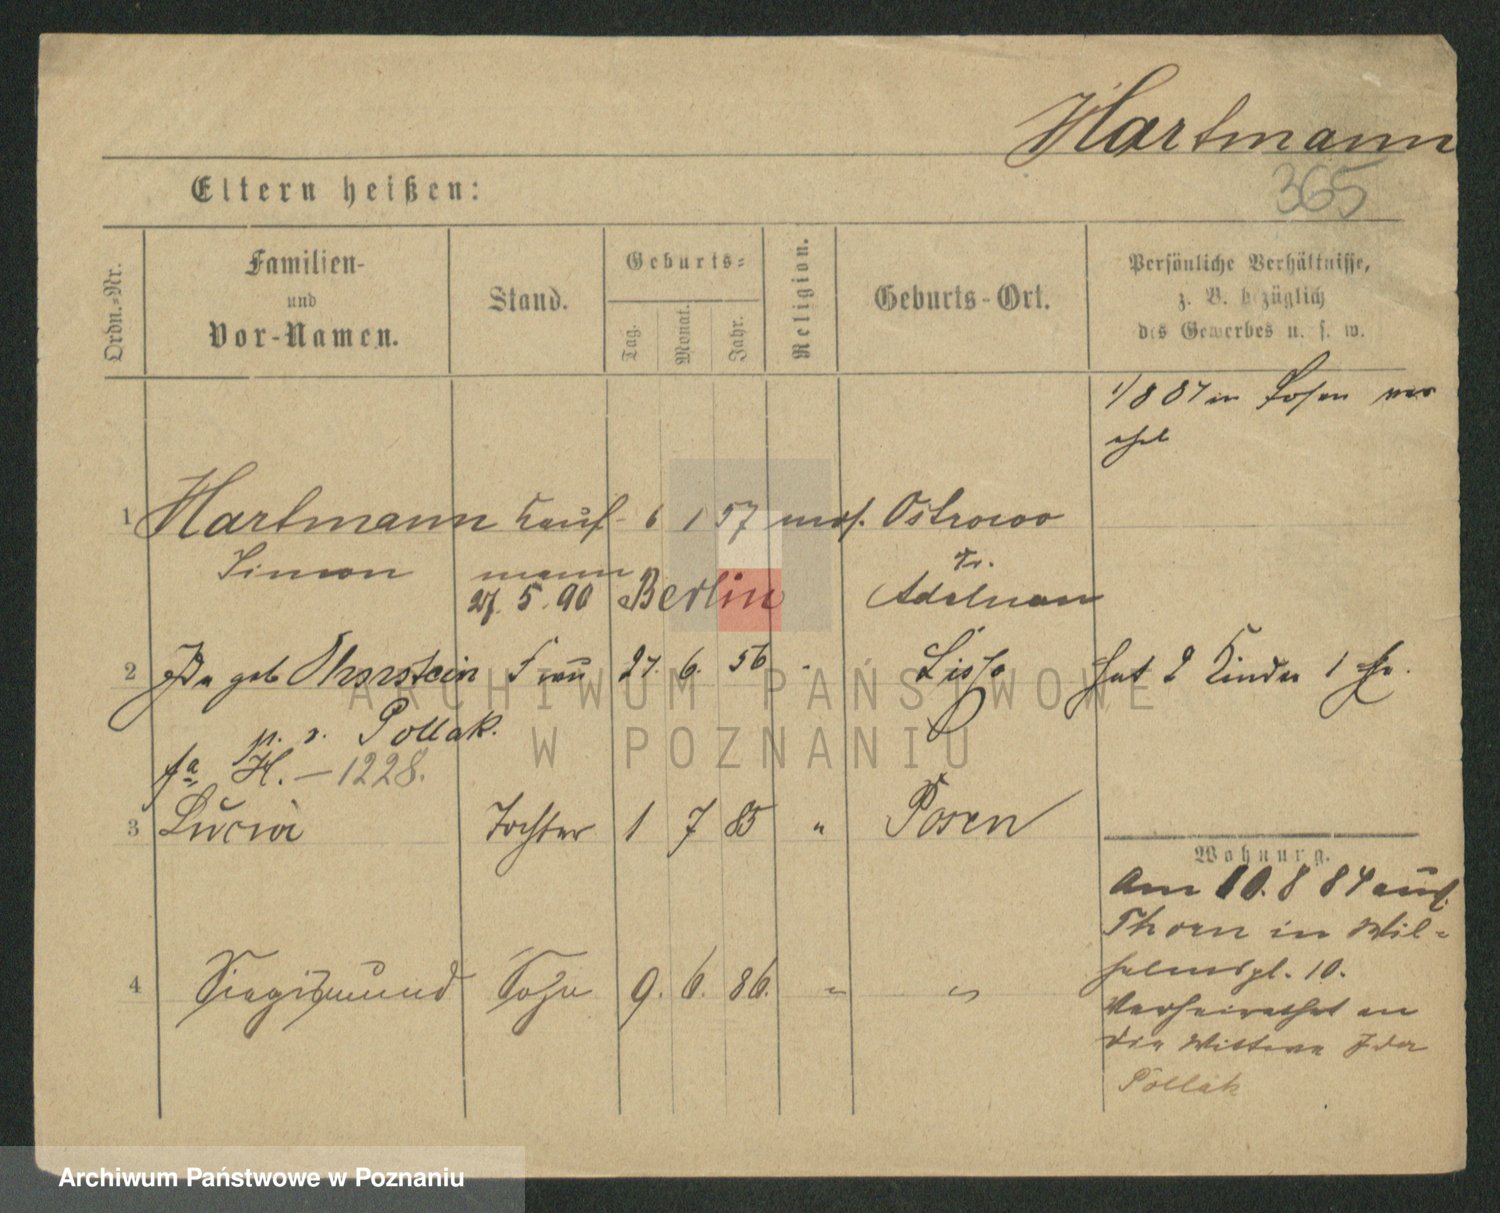 Hartmann
365
Eltern heißen:
Ordn.-Nr.
Familien-
und
Vor-Namen.
Stand.
Geburts-
Tag.
Monat.
Jahr.
Religion.
Geburts-Ort.
Persönliche Verhältnisse,
z. B. bezüglich
des Gewerbes u. s. w.
1/8 87 in Posen
1 Hartmann Kauf- 6 1 57 mos. Ostrowo
Simon mann Kr.
27. 5. 90 Berlin Adelnau
2 Ida geb Ohrstein Frau 27. 6. 56 Lissa hat 2 Kinder 1
p. v. Pollak.
fa H. – 1228.
3 Lucia Tochter 1 7 85 " Posen
Wohnung.
Am 10. 8 84 aus
Thorn in Wil-
helmspl. 10.
4 Siegismund Sohn 9. 6. 86. " "
Verheirathet an
die Wittwe Ida
Pollak
ARCHIWUM PAŃSTWOWE
W POZNANIU
Archiwum Państwowe w Poznaniu